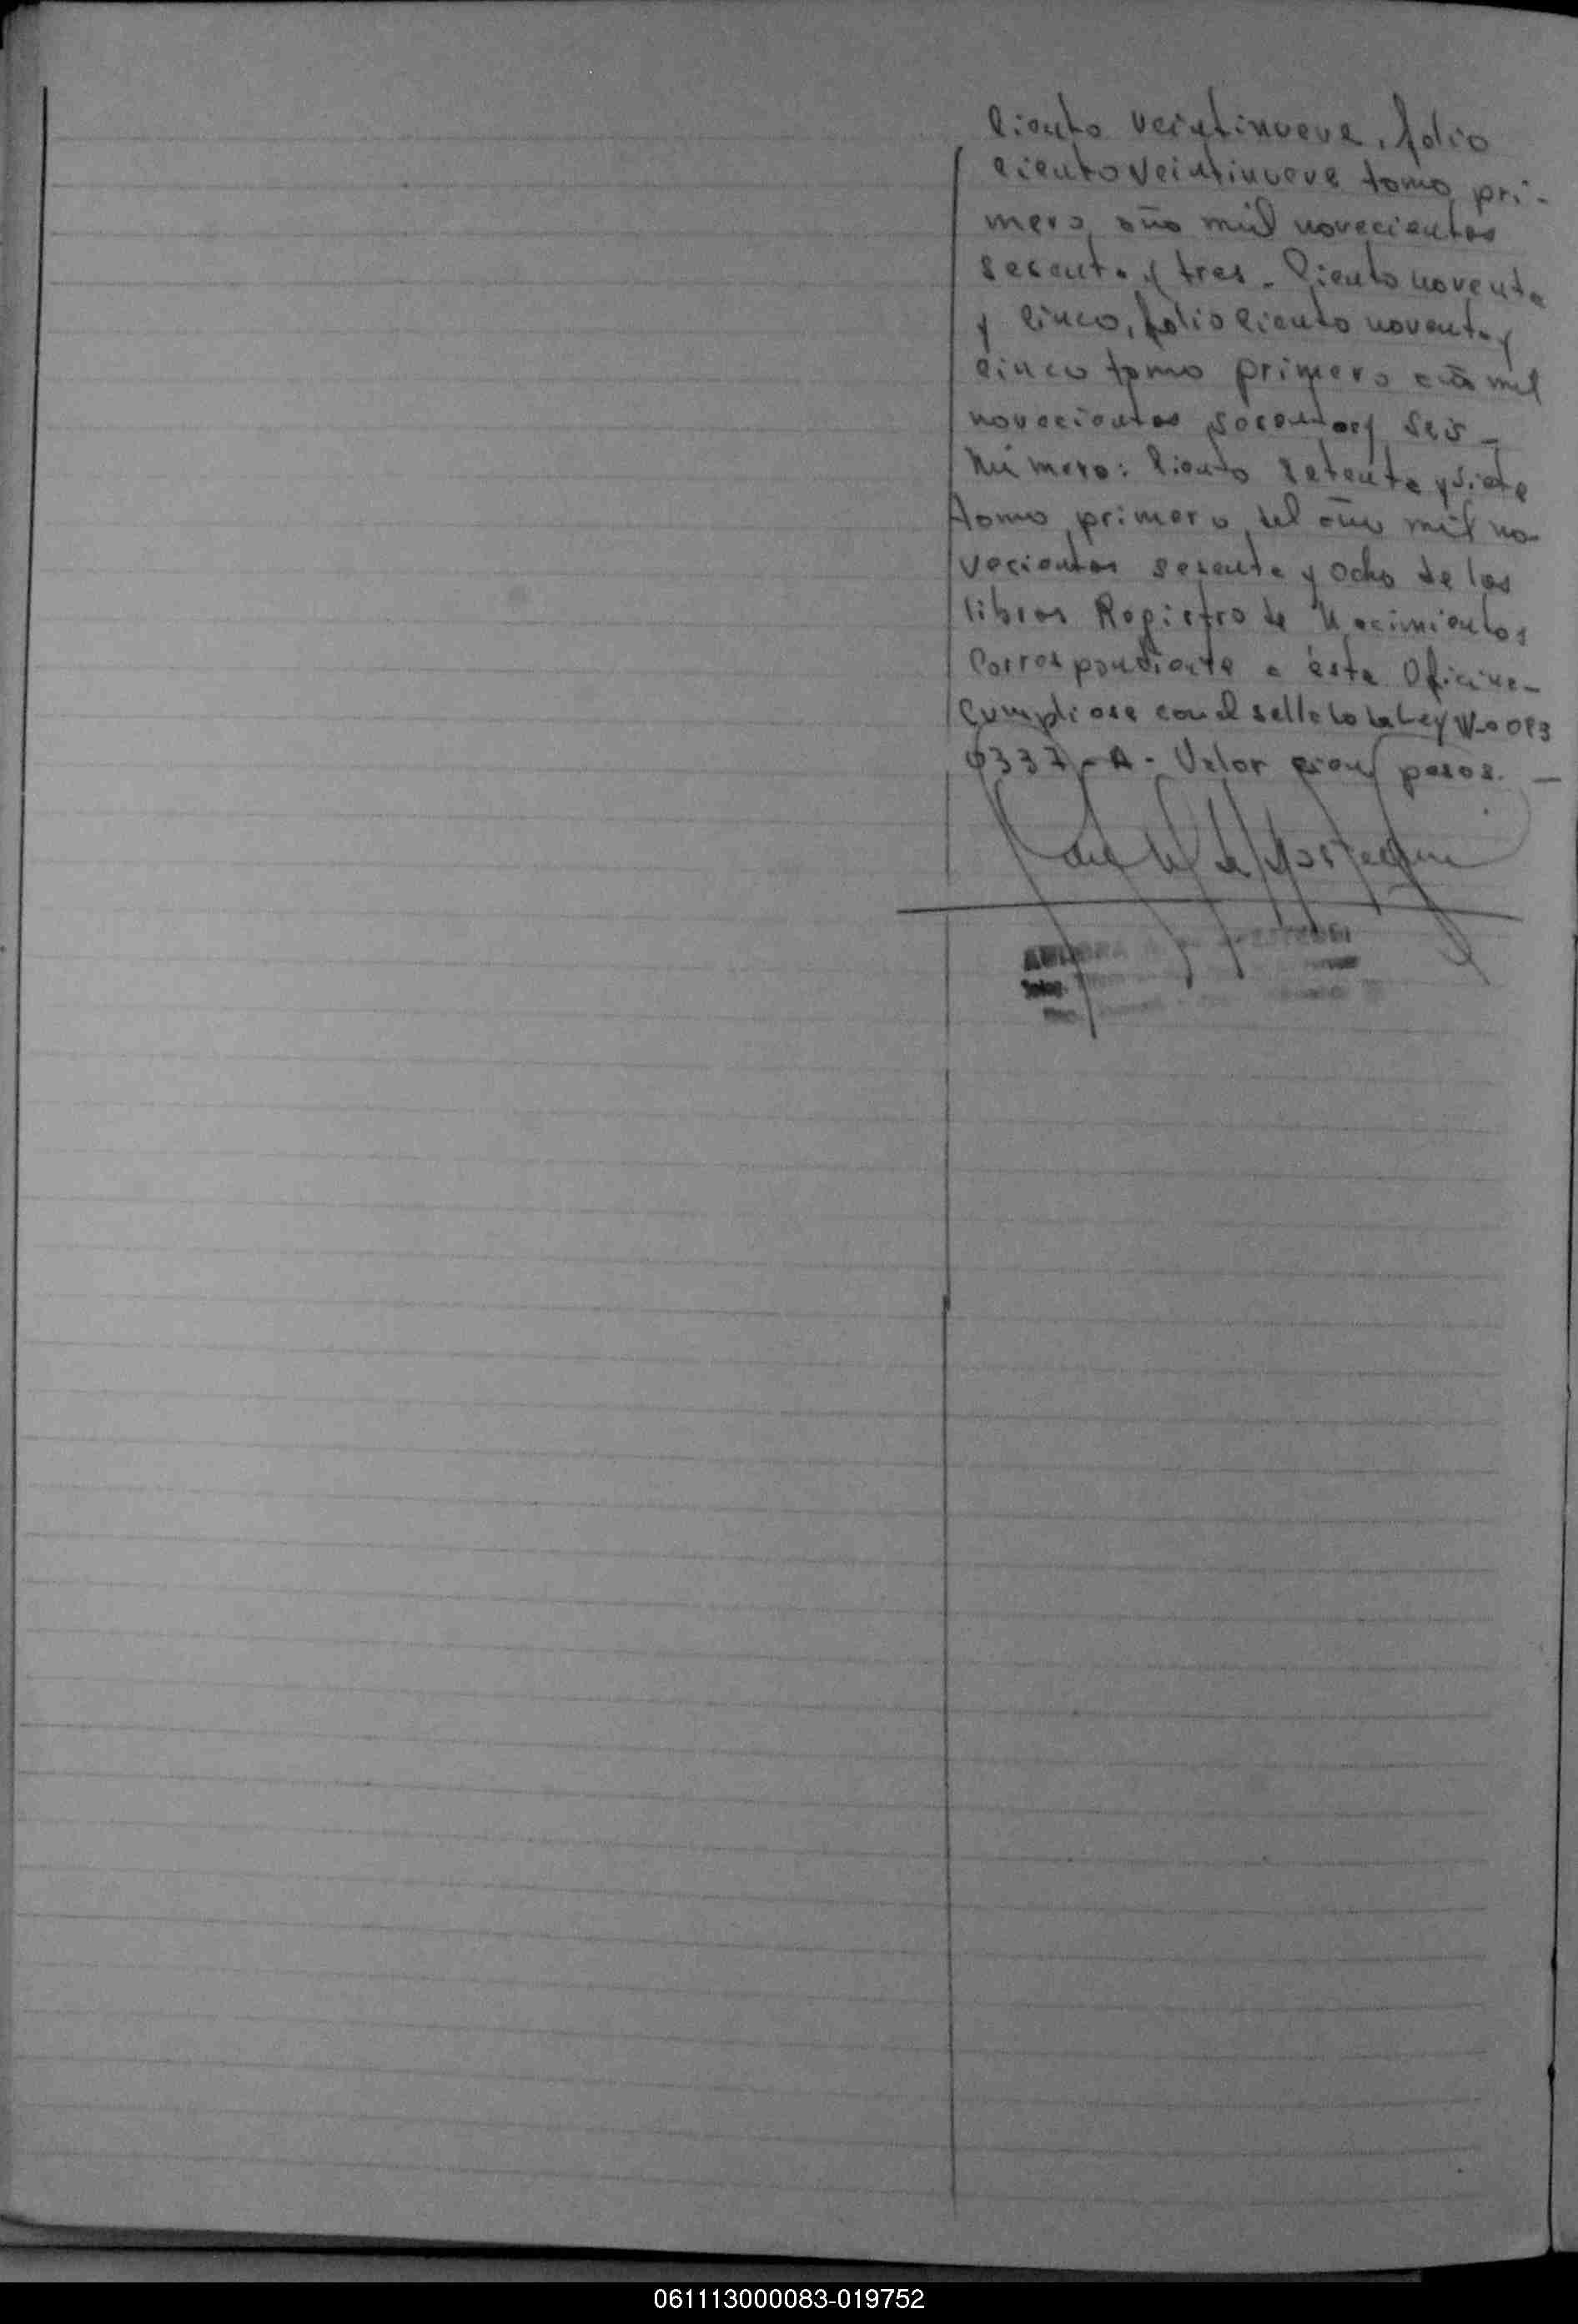 Ciento veintinueve, folio
ciento veintinueve tomo pri-
mero, año mil novecientos
sesenta y tres - Ciento noventa
y cinco, folio ciento noventa y
cinco tomo primero año mil
novecientos sesenta y seis -
Número: Ciento setenta y siete
tomo primero del año mil no-
vecientos sesenta y ocho de los
libros Registro de Nacimientos
Correspondiente a ésta Oficina -
Cumpliose con el sello de la Ley Nº 0083
0337 - A - Valor cien pesos. -
061113000083-019752